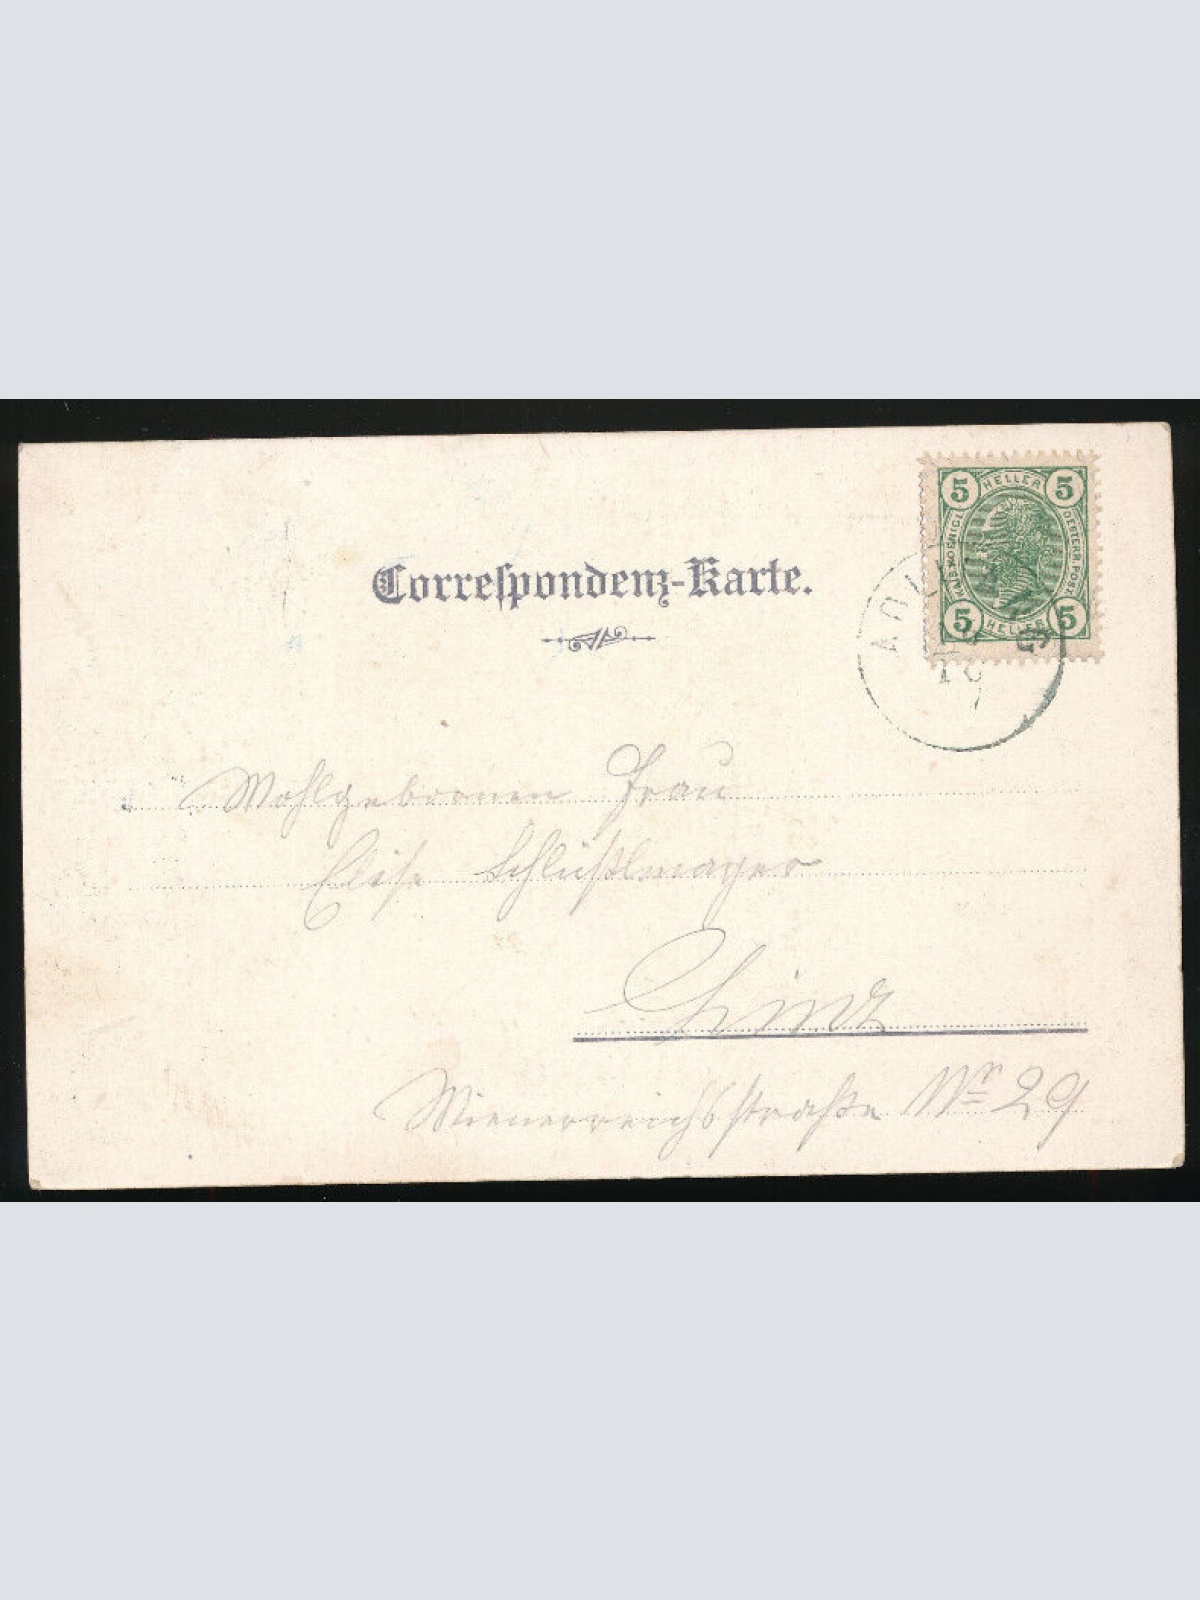 Correspondenz-Karte.
5 HELLER 5
KAIS. KOENIGL. OESTERR. POST.
5 HELLER 5
Wohlgebornen Frau
Elise Schlüßlmayer
Linz
Wienerreichsstraße Nr 29